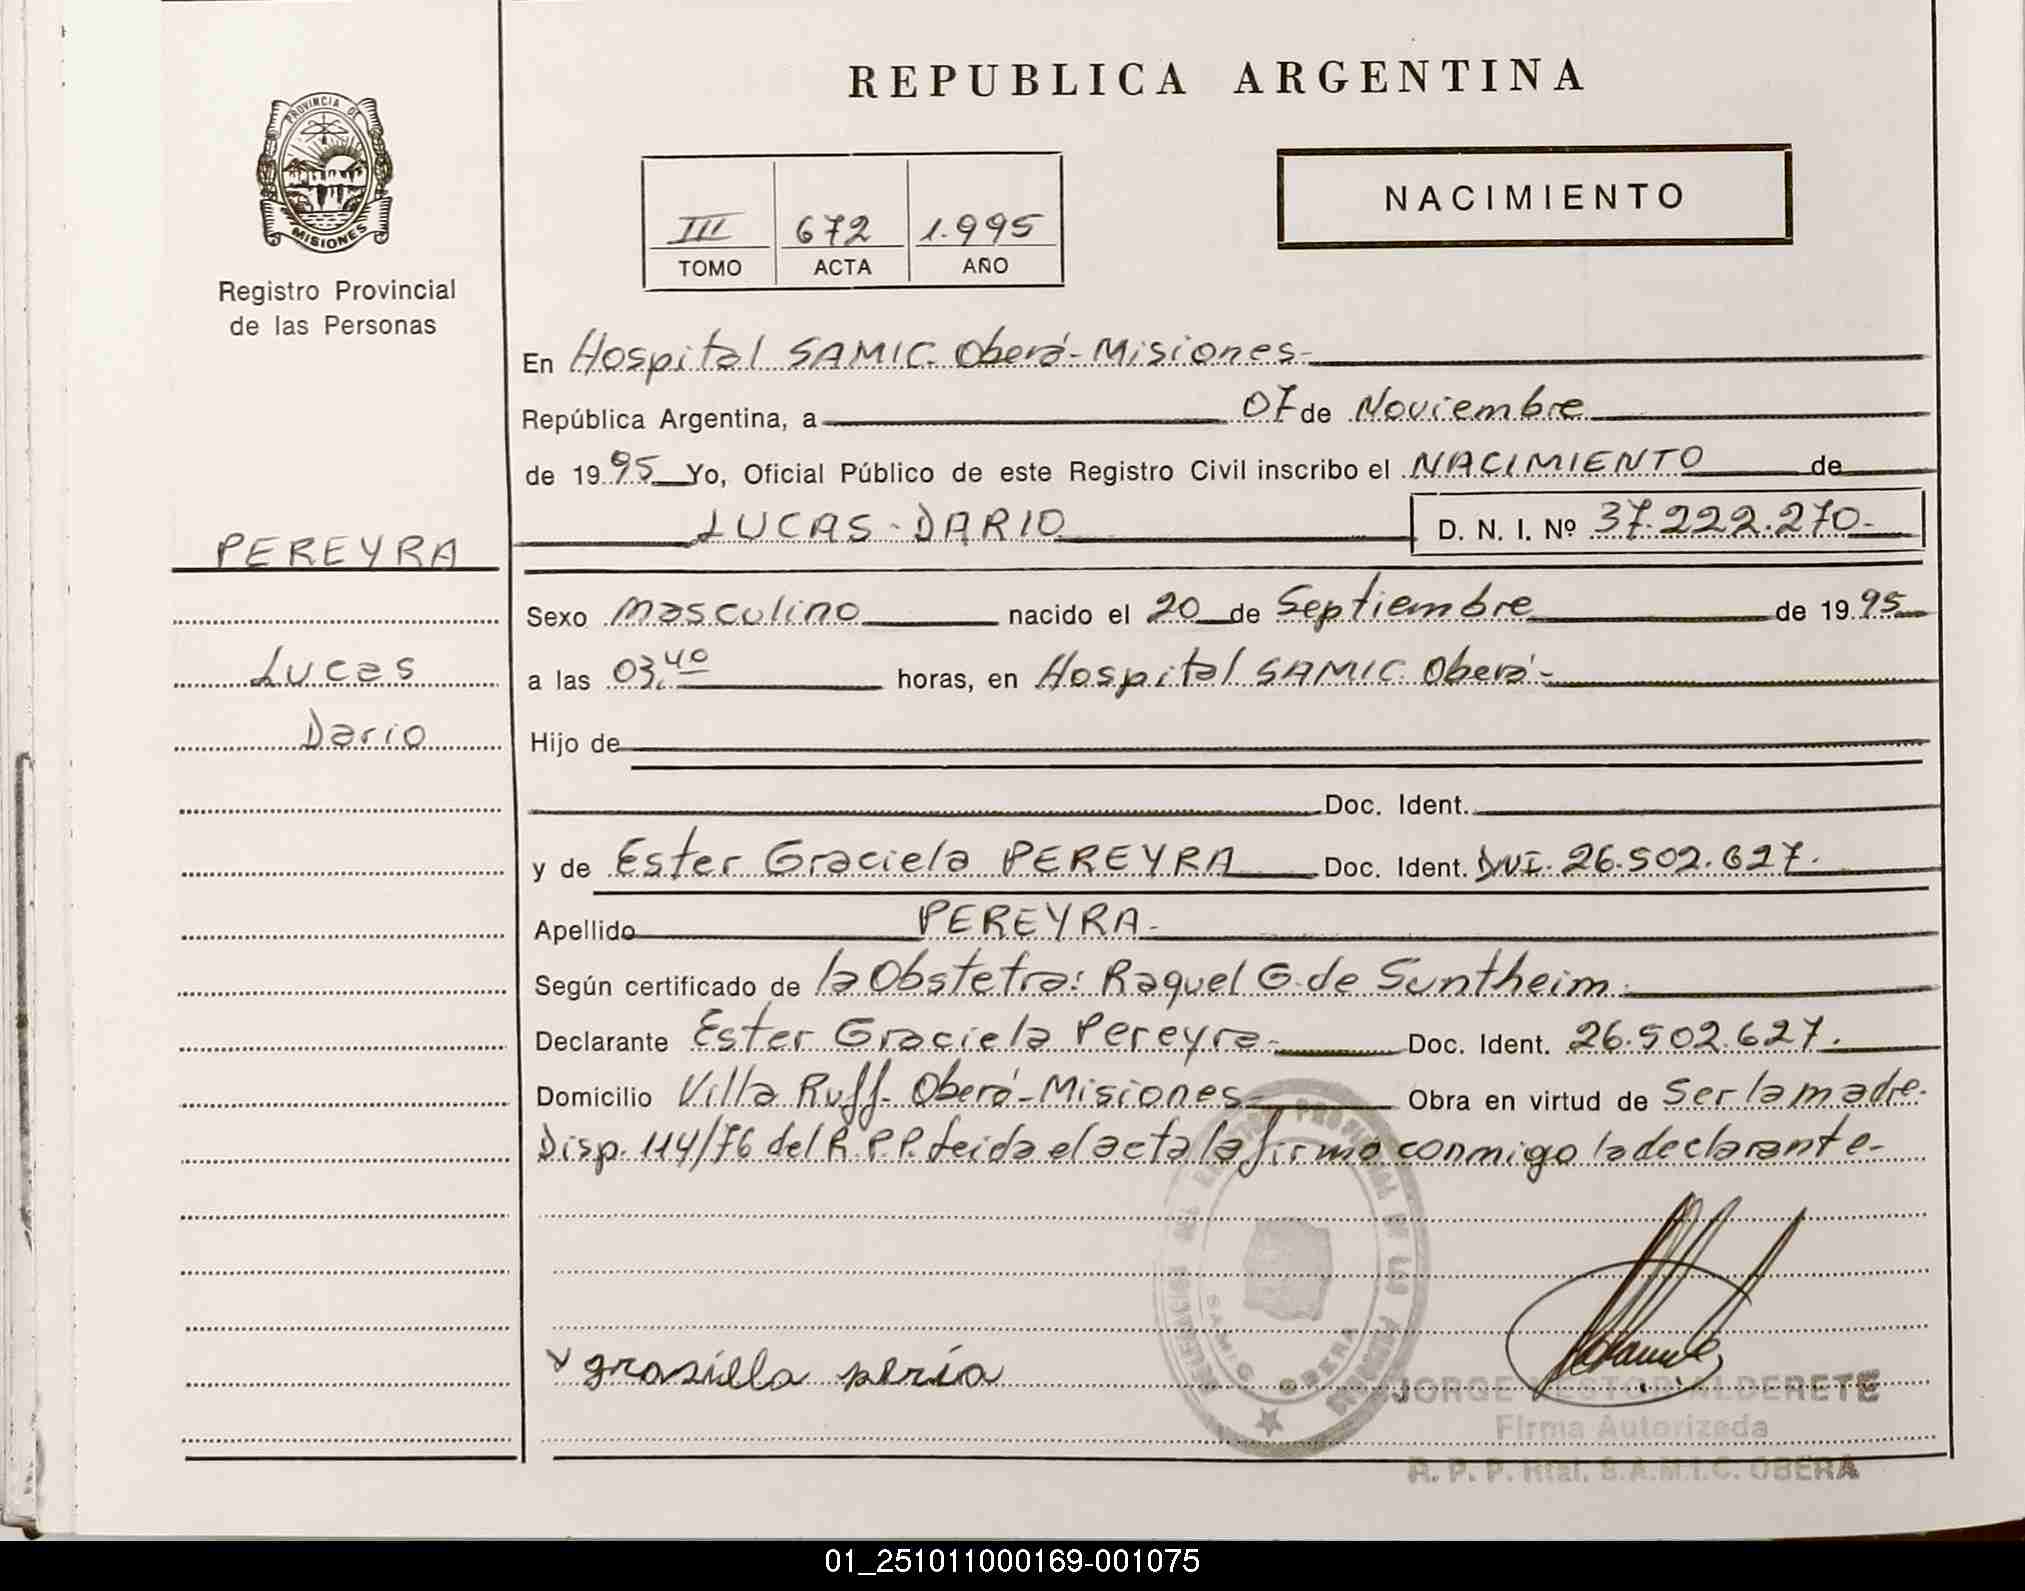 REPUBLICA ARGENTINA
PROVINCIA DE
MISIONES
Registro Provincial
de las Personas
NACIMIENTO
III 672 1.995
TOMO ACTA AÑO
En Hospital SAMIC. Oberá-Misiones-
República Argentina, a 07 de Noviembre
de 1995 Yo, Oficial Público de este Registro Civil inscribo el NACIMIENTO de
LUCAS-DARIO D. N. I. Nº 37.222.270-
PEREYRA
Lucas
Dario
Sexo Masculino nacido el 20 de Septiembre de 1995
a las 03,40 horas, en Hospital SAMIC. Oberá-
Hijo de
Doc. Ident.
y de Ester Graciela PEREYRA Doc. Ident. DNI. 26.502.627.
Apellido PEREYRA-
Según certificado de la Obstetra: Raquel G. de Suntheim.
Declarante Ester Graciela Pereyra- Doc. Ident. 26.502.627.
Domicilio Villa Ruff- Oberá-Misiones- Obra en virtud de Ser la madre-
Disp. 114/76 del R.P.P. Leida el acta la firma conmigo la declarante-
JORGE NESTOR ALDERETE
Firma Autorizada
R. P. P. Htal. S.A.M.I.C. OBERA
01_251011000169-001075